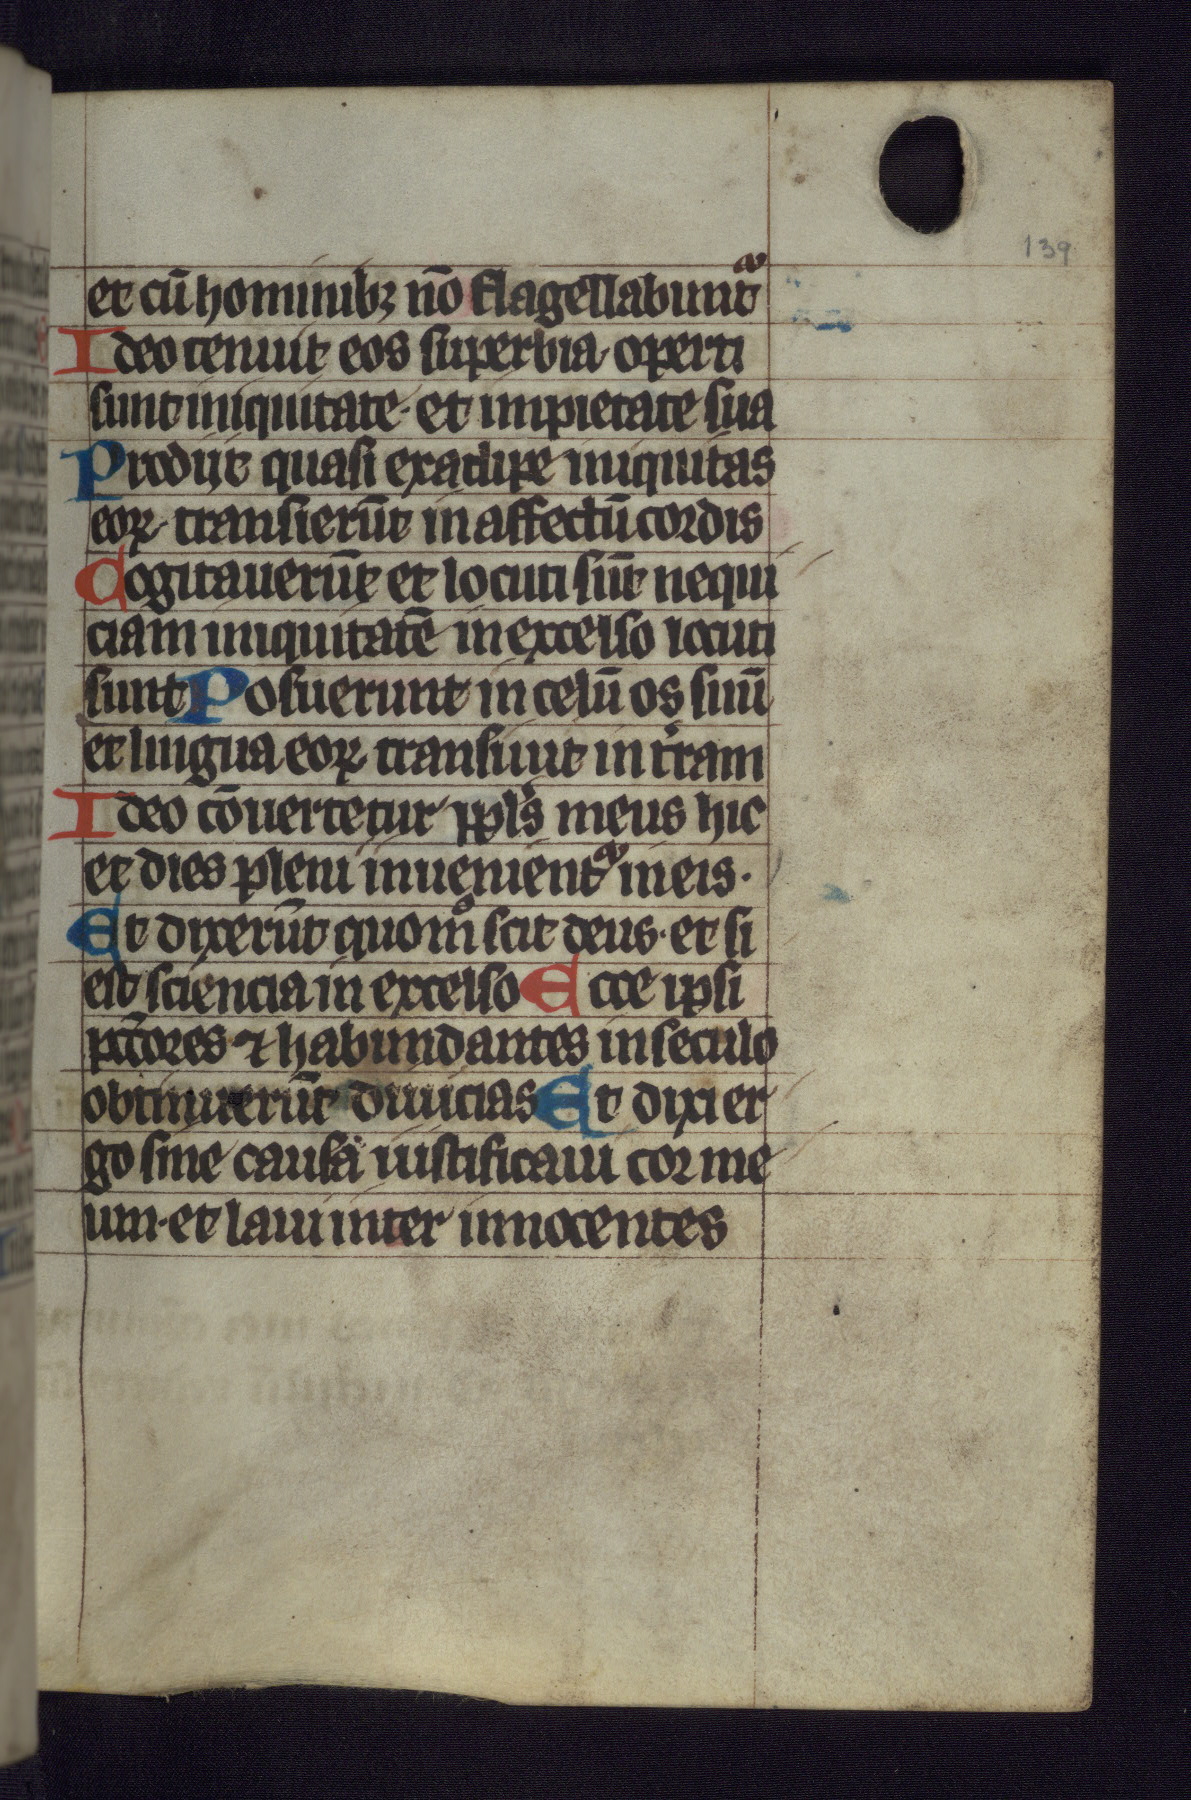 139
et cū hominibꝫ nō flagellabunt᷑
Ideo tenuit eos superbia operti
sunt iniquitate· et impietate sua
Prodijt quasi ex adipe iniquitas
eoꝝ· transierūt in affectū cordis
Cogitauerūt et locuti sūt nequi
ciam iniquitatē in excelso locuti
sunt Posuerunt in celū os suū
et lingua eoꝝ transiuit in t̓ram
Ideo cōuertetur ppl̓s meus hic
et dies pleni inuenient᷑ in eis·
Et dixerūt quom̊ scit deus· et si
est sciencia in excelso Ecce ipsi
pctōres ⁊ habundantes in seculo
obtinuerūt diuicias Et dixi er
go sine causa iustificaui cor me
um· et laui inter innocentes